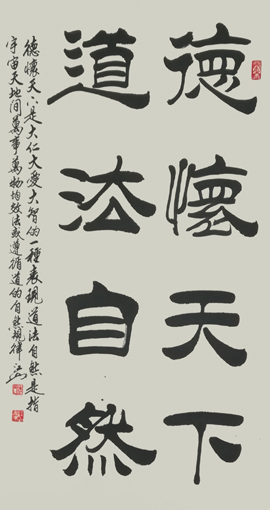 德懷天下
道法自然
德懷天下是大仁大愛大智的一種表現道法自然是指
宇宙天地间萬事萬物均效法或遵循道的自然規律